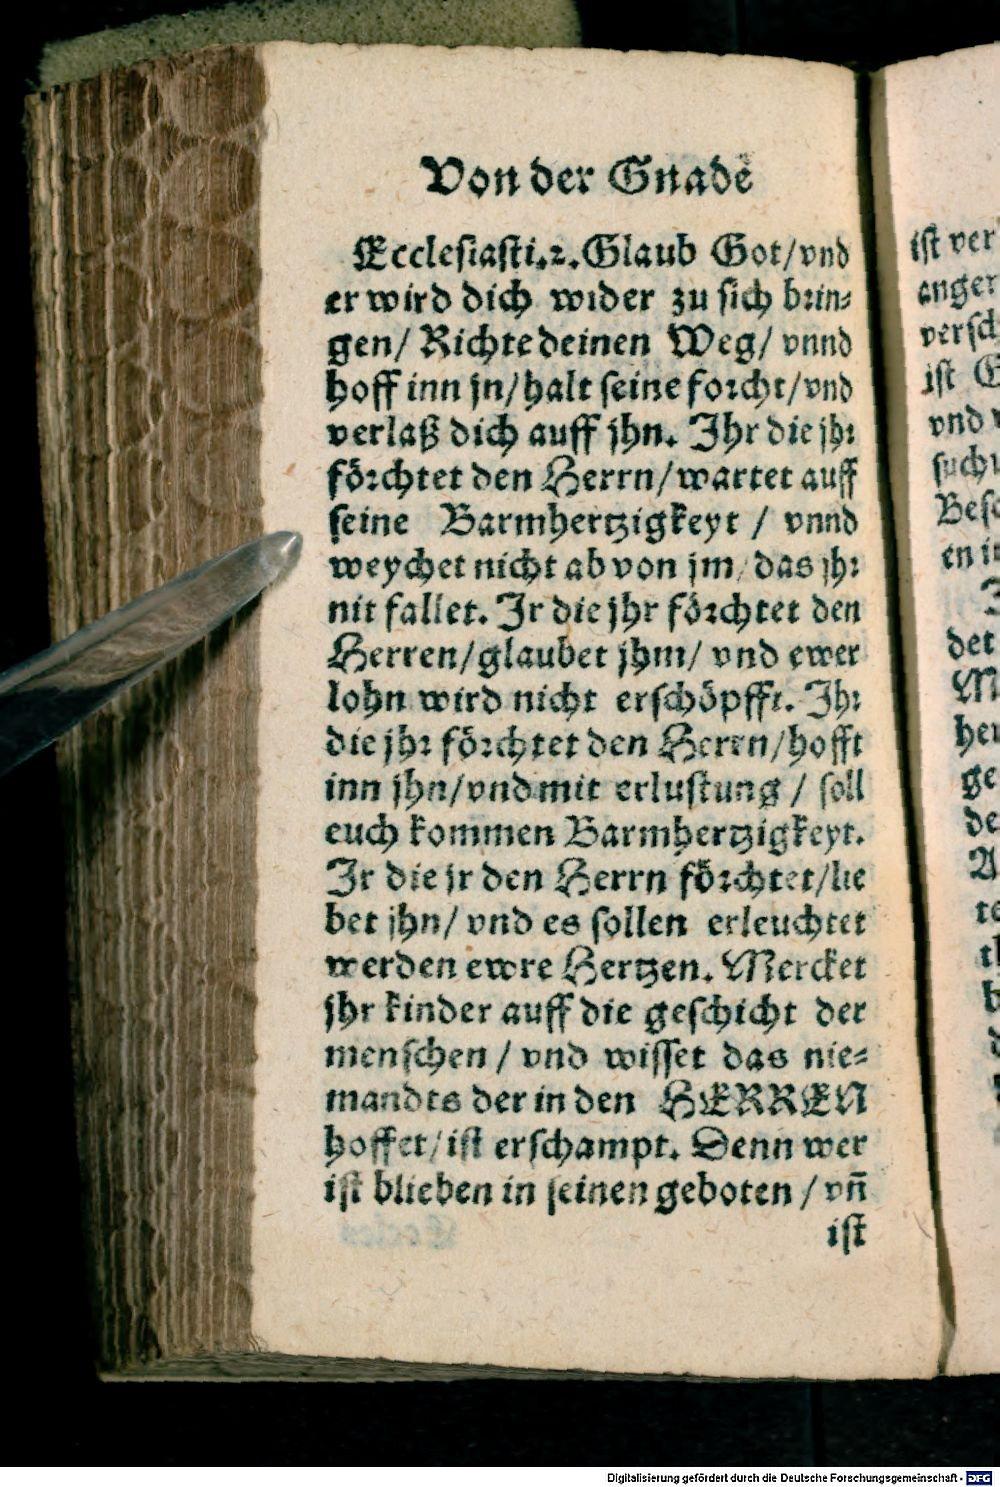 Von der Gnade
Ecclesiasti.2. Glaub Got/vnd
er wird dich wider zu sich brin-
gen/ Richte deinen Weg/ vnnd
hoff inn jn/halt seine forcht/vnd
verlaß dich auff jhn. Jhr die jhr
förchtet den Herrn/wartet auff
seine Barmhertzigkeyt / vnnd
weychet nicht ab von jm/das jhr
nit fallet. Jr die jhr förchtet den
Herren/glaubet jhm/ vnd ewer
lohn wird nicht erschöpfft. Jhr
die jhr förchtet den Herrn/hofft
inn jhn/vnd mit erlustung / soll
euch kommen Barmhertzigkeyt.
Jr die jr den Herrn förchtet/lie
bet jhn/ vnd es sollen erleuchtet
werden ewre Hertzen. Mercket
jhr kinder auff die geschicht der
menschen / vnd wisset das nie-
mandts der in den HERREN
hoffet/ist erschampt. Denn wer
ist blieben in seinen geboten / vn̄
ist
ist ver
anger
versch
ist
vnd
such
Besc
en in
det
M
her
ge
de
A
te
Digitalisierung gefördert durch die Deutsche Forschungsgemeinschaft - DFG